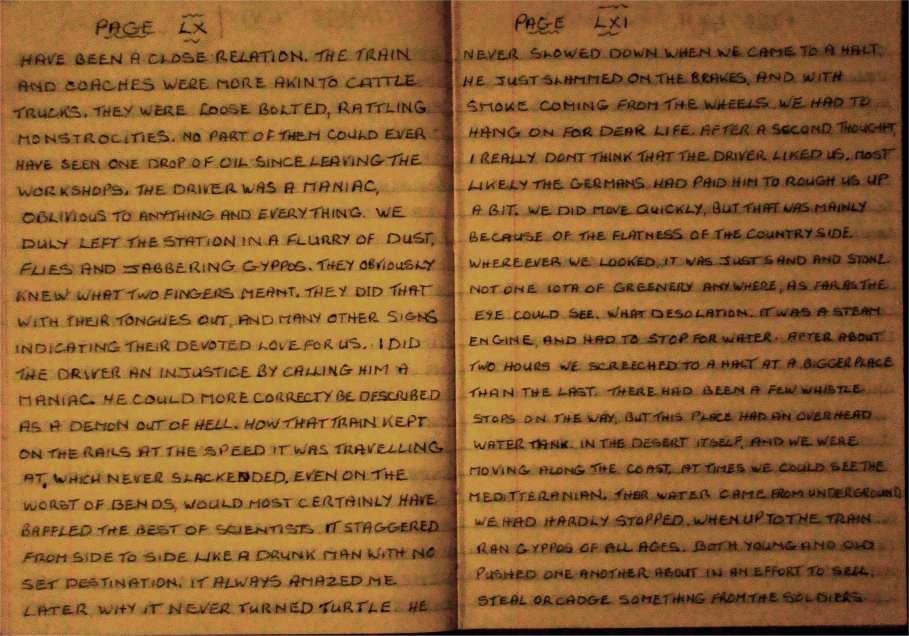 PAGE LX
HAVE BEEN A CLOSE RELATION. THE TRAIN
AND COACHES WERE MORE AKIN TO CATTLE
TRUCKS. THEY WERE LOOSE BOLTED, RATTLING
MONSTROCITIES. NO PART OF THEM COULD EVER
HAVE SEEN ONE DROP OF OIL SINCE LEAVING THE
WORKSHOPS. THE DRIVER WAS A MANIAC,
OBLIVIOUS TO ANYTHING AND EVERYTHING. WE
DULY LEFT THE STATION IN A FLURRY OF DUST,
FLIES AND JABBERING GYPPOS. THEY OBVIOUSLY
KNEW WHAT TWO FINGERS MEANT. THEY DID THAT
WITH THEIR TONGUES OUT, AND MANY OTHER SIGNS
INDICATING THEIR DEVOTED LOVE FOR US. I DID
THE DRIVER AN INJUSTICE BY CALLING HIM A
MANIAC. HE COULD MORE CORRECTY BE DESCRIBED
AS A DEMON OUT OF HELL. HOW THAT TRAIN KEPT
ON THE RAILS AT THE SPEED IT WAS TRAVELLING
AT, WHICH NEVER SLACKENDED, EVEN ON THE
WORST OF BENDS, WOULD MOST CERTAINLY HAVE
BAFFLED THE BEST OF SCIENTISTS. IT STAGGERED
FROM SIDE TO SIDE LIKE A DRUNK MAN WITH NO
SET DESTINATION. IT ALWAYS AMAZED ME
LATER WHY IT NEVER TURNED TURTLE. HE
PAGE LXI
NEVER SLOWED DOWN WHEN WE CAME TO A HALT.
HE JUST SLAMMED ON THE BRAKES, AND WITH
SMOKE COMING FROM THE WHEELS WE HAD TO
HANG ON FOR DEAR LIFE. AFTER A SECOND THOUGHT,
I REALLY DONT THINK THAT THE DRIVER LIKED US. MOST
LIKELY THE GERMANS HAD PAID HIM TO ROUGH US UP
A BIT. WE DID MOVE QUICKLY, BUT THAT WAS MAINLY
BECAUSE OF THE FLATNESS OF THE COUNTRYSIDE
WHEREEVER WE LOOKED, IT WAS JUST SAND AND STONE
NOT ONE IOTA OF GREENERY ANYWHERE, AS FAR AS THE
EYE COULD SEE. WHAT DESOLATION. IT WAS A STEAM
ENGINE, AND HAD TO STOP FOR WATER. AFTER ABOUT
TWO HOURS WE SCREECHED TO A HALT AT A BIGGER PLACE
THAN THE LAST. THERE HAD BEEN A FEW WHISTLE
STOPS ON THE WAY, BUT THIS PLACE HAD AN OVERHEAD
WATER TANK. IN THE DESERT ITSELF, AND WE WERE
MOVING ALONG THE COAST, AT TIMES WE COULD SEE THE
MEDITTERANIAN. THER WATER CAME FROM UNDERGROUND
WE HAD HARDLY STOPPED, WHEN UP TO THE TRAIN
RAN GYPPOS OF ALL AGES. BOTH YOUNG AND OLD
PUSHED ONE ANOTHER ABOUT IN AN EFFORT TO SELL,
STEAL OR CADGE SOMETHING FROM THE SOLDIERS